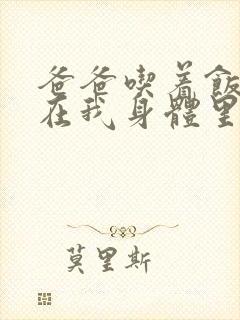 爸爸喫着飯
在我身體里
莫里斯